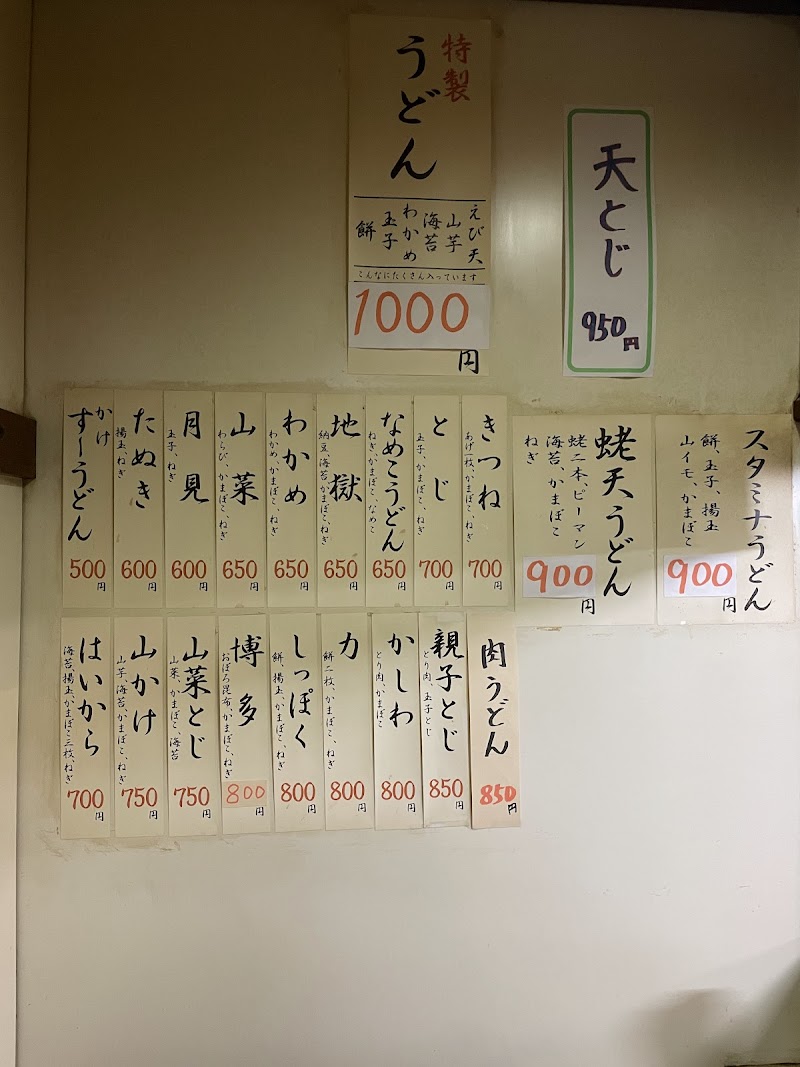 特製
うどん
えび天
山芋
海苔
わかめ
玉子
餅
こんなにたくさん入っています
1000
円
天とじ
950円
スタミナうどん
餅、玉子、揚玉
山イモ、かまぼこ
900
円
蛯天うどん
蛯二本、ピーマン
海苔、かまぼこ
ねぎ
900
円
きつね
あげ一枚、かまぼこ、ねぎ
700
円
とじ
玉子、かまぼこ、ねぎ
700
円
なめこうどん
ねぎ、かまぼこ、なめこ
650
円
地獄
納豆、海苔、かまぼこ、ねぎ
650
円
わかめ
わかめ、かまぼこ、ねぎ
650
円
山菜
わらび、かまぼこ、ねぎ
650
円
月見
玉子、ねぎ
600
円
たぬき
揚玉、ねぎ
600
円
かけ
すーうどん
500
円
肉うどん
850円
親子とじ
とり肉、玉子とじ
850
円
かしわ
とり肉、かまぼこ
800
円
力
餅二枚、かまぼこ、ねぎ
800
円
しっぽく
餅、揚玉、かまぼこ、ねぎ
800
円
博多
おぼろ昆布、かまぼこ、ねぎ
800
円
山菜とじ
山菜、かまぼこ、海苔
750
円
山かけ
山芋、海苔、かまぼこ、ねぎ
750
円
はいから
海苔、揚玉、かまぼこ三枚、ねぎ
700
円